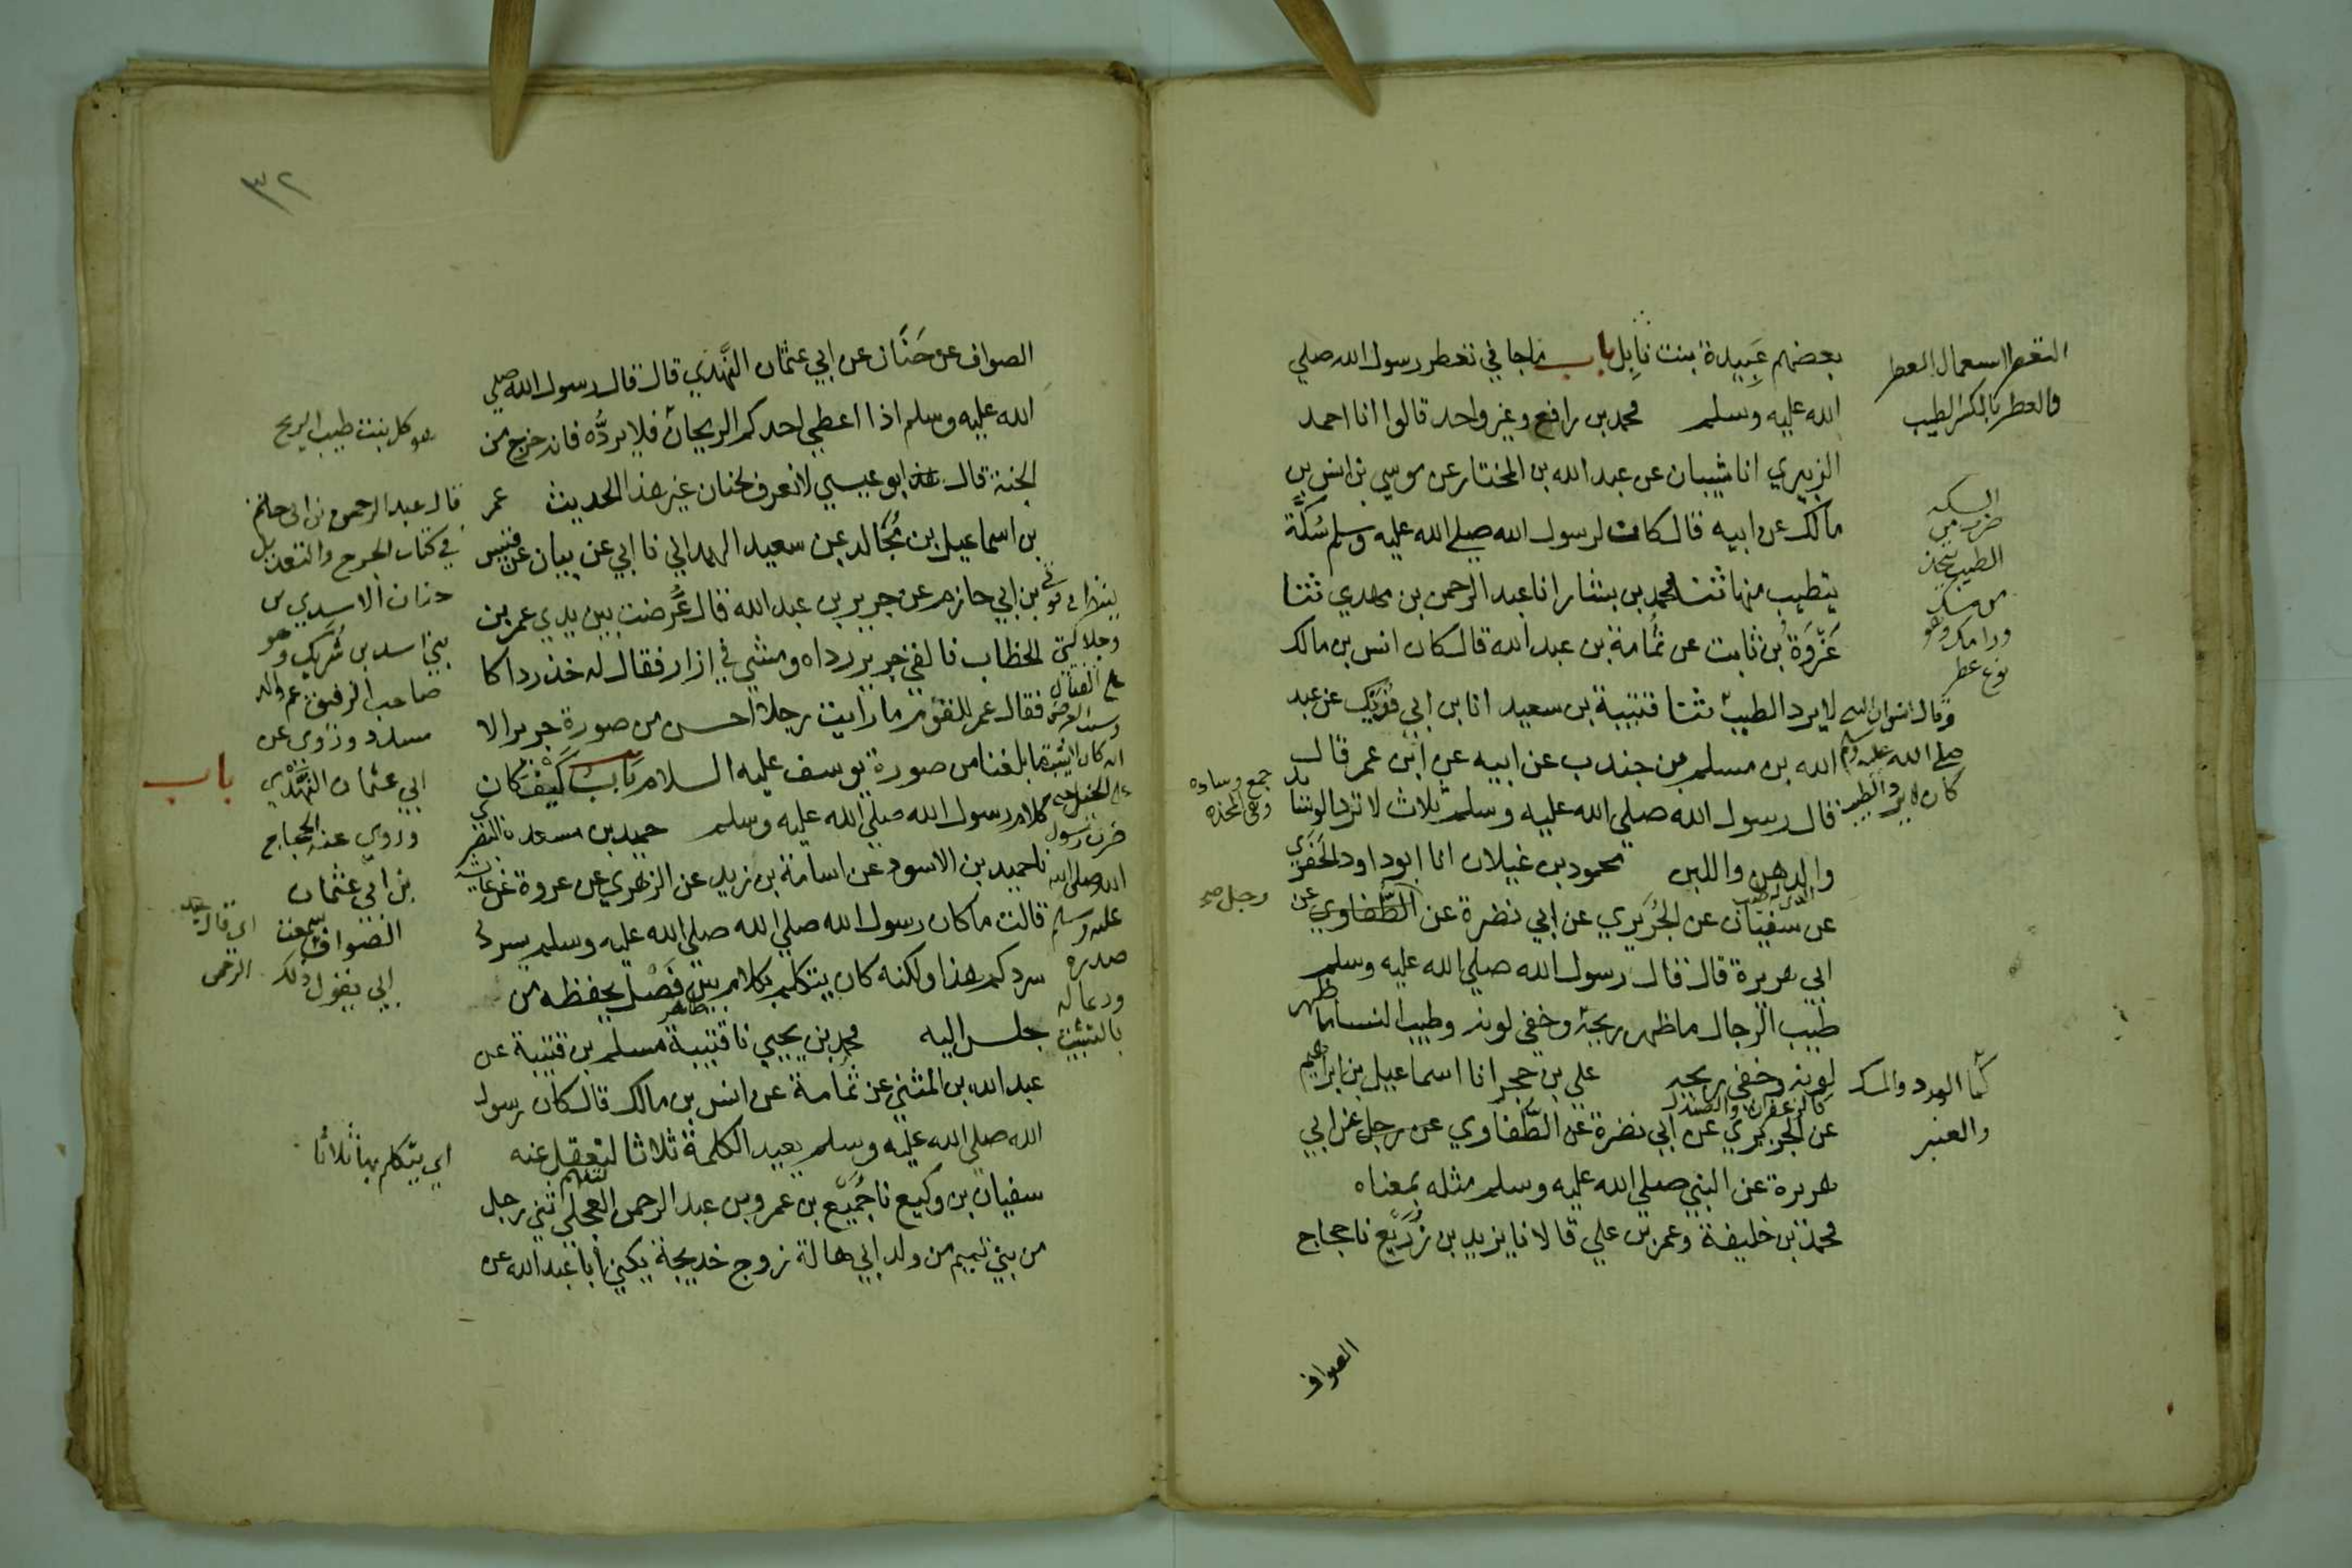 بعضهم عَبِيدة بنت نابِل باب ماجا في تعطر رسول الله صلي
الله عليه وسلم محمد بن رافع وغير واحد قالوا انا احمد
الزبيري انا شيبان عن عبد الله بن المختار عن موسي بن انس بن
مالك عن ابيه قال كانت لرسول الله صلي الله عليه وسلم سُكَّة
يتطيب منها ثنا محمد بن بشار انا عبد الرحمن بن مهدي ثنا
عَزْوَة بن ثابت عن ثُمامة بن عبد الله قال كان انس بن مالك
لا يرد الطيب ثنا قتيبة بن سعيد انا بن ابي فُدَيْك عن عبد
الله بن مسلم بن جندب عن ابيه عن ابن عمر قال
قال رسول الله صلي الله عليه وسلم ثلاث لا ترد الوسائد
والدهن واللبن محمود بن غيلان انا ابو داود الحَفَري
عن سفيان عن الجُرَيري عن ابي نضرة عن الطُّفاوي عن
ابي هريرة قال قال رسول الله صلي الله عليه وسلم
طيب الرجال ماظهر ريحه وخفي لونه وطيب النسا ما ظهر
لونه وخفي ريحه علي بن حجر انا اسماعيل بن ابراهيم
عن الجريري عن ابي نضرة عن الطُّفاوي عن رجل عن ابي
هريرة عن النبي صلي الله عليه وسلم مثله بمعناه
محمد بن خليفة وعمر بن علي قالا نا يزيد بن زُرَيع نا حجاج
الصواف
التعطر استعمال العطر
والعطر بالكسر الطيب
السكه
ضرب من
الطيب يتخذ
من مسك
ورامك وهو
نوع عطر
وقال انس ان النبي
صلي الله عليه وسلم
كان لا يرد الطيب
جمع وسادة
وهي المخدة
رجل صح
كماء الورد والمسك
والعنبر
كالزعفران والصندل
٣٢
الصواف عن حَنَان عن ابي عثمان النَّهْدي قال قال رسول الله صلي
الله عليه وسلم اذا اعطي احدكم الريحان فلا يردُّه فانه خرج من
الجنة قال ابو عيسي لا نعرف لحنان غير هذا الحديث عمر
بن اسماعيل بن مُجَالد بن سعيد الهمداني نا ابي عن بيان عن قيس
بن ابي حازم عن جرير بن عبد الله قال عُرضت بين يدي عمر بن
الخطاب فالقي جرير رداه ومشي في ازار فقال له خذ رداك
فقال عمر للقوم ما رايت رجلا احسن من صورة جرير الا
ما بلغنا من صورة يوسف عليه السلام باب كيف كان
كلام رسول الله صلي الله عليه وسلم حميد بن مسعدة البصري
نا حميد بن الاسود عن اسامة بن زيد عن الزهري عن عروة عن عايشة
قالت ما كان رسول الله صلي الله صلي الله عليه وسلم يسرد
سردكم هذا ولكنه كان يتكلم بكلام بين فَصْل يحفظه من
جلس اليه محمد بن يحيي نا قتيبة مسلم بن قتيبة عن
عبد الله بن المثني عن ثمامة عن انس بن مالك قال كان رسول
الله صلي الله عليه وسلم يعيد الكلمة ثلاثا لتعقل عنه
سفيان بن وكيع نا جُمَيع بن عمرو بن عبد الرحمن العجلي ثني رجل
من بني تميم من ولد ابي هالة زوج خديجة يكني ابا عبد الله عن
هو كل نبت طيب الريح
قال عبد الرحمن بن ابي حاتم
في كتاب الجرح والتعديل
حنان الاسدي من
بني اسد بن شُرَيك وهو
صاحب الرقيق عم والد
مسدد وروي عن
ابي عثمان النَّهْدي
وروي عنه الحجاج
بن ابي عثمان
الصواف سمعت
ابي يقول ذلك
باب
اي قال عبد
الرحمن
اي يتكلم بها ثلاثا
ضرب رسول
الله صلي الله
عليه وسلم
صدره
ودعا له
بالتثبيت
ظاهر